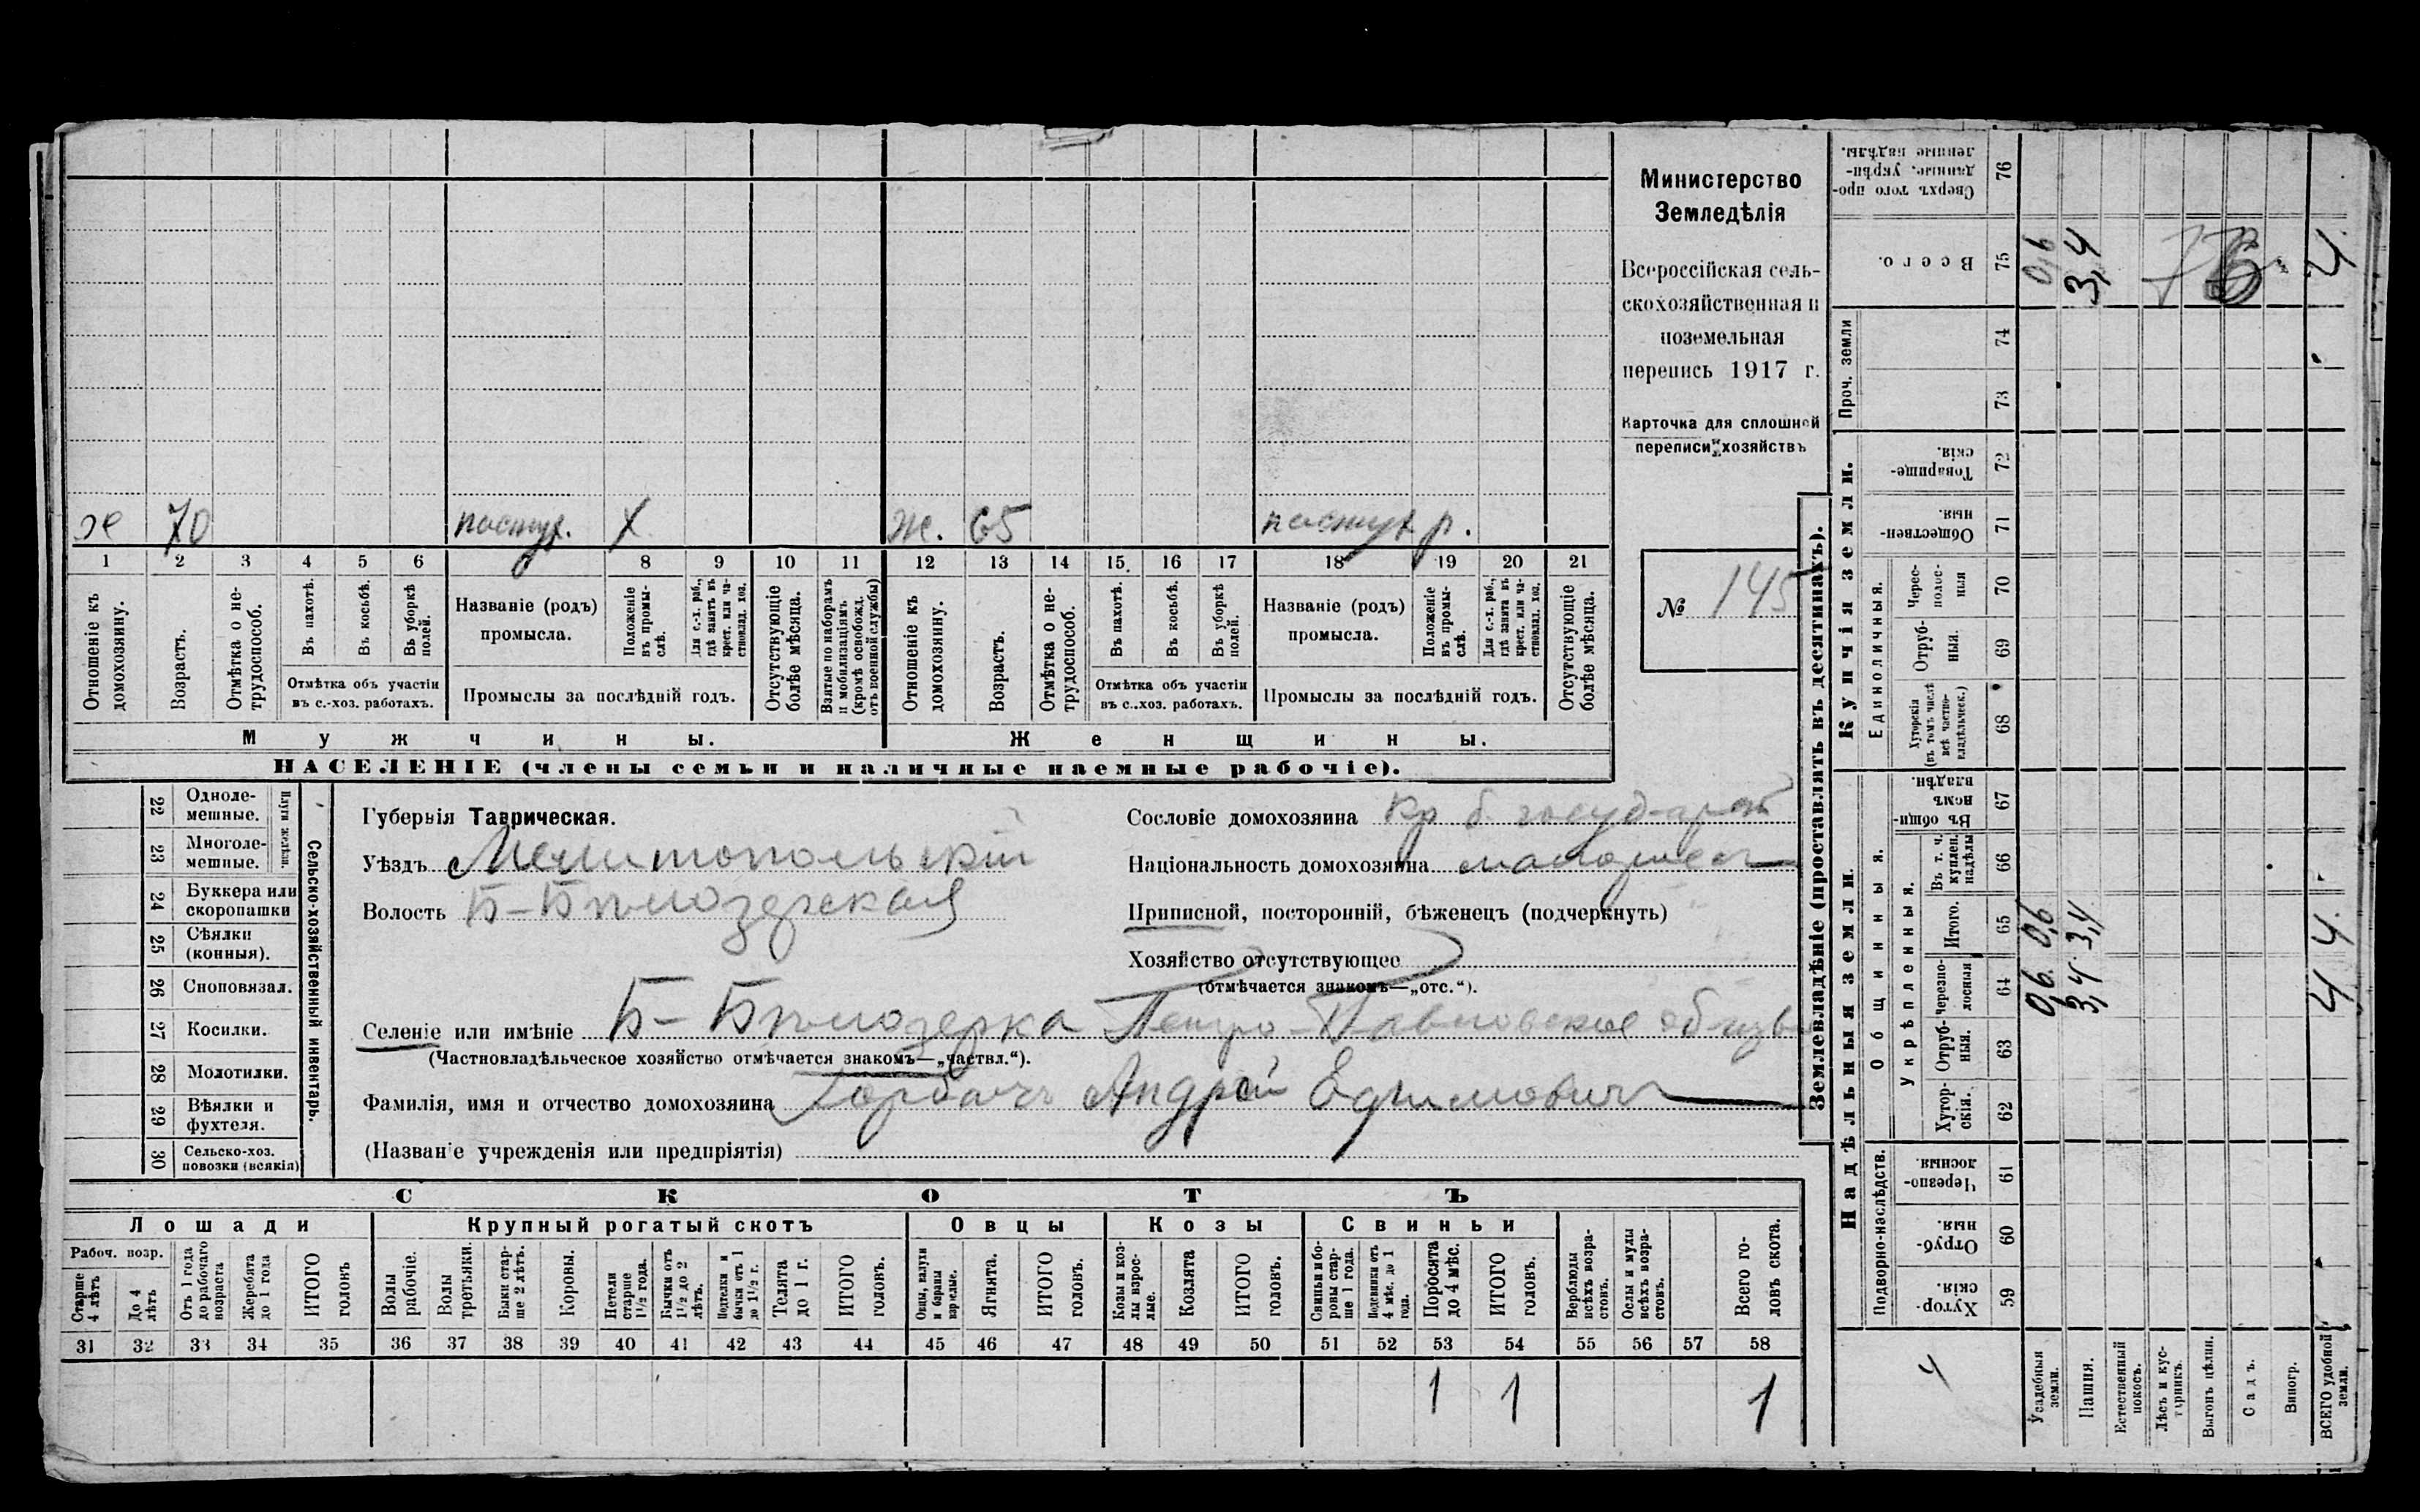 Министерство
Земледѣлія
Всероссійская сель-
скохозяйственная и
поземельная
перепись 1917 г.
Карточка для сплошной
переписи хозяйствъ
№ 145
70 пастух. Х ж. 65 пастух р.
1 2 3 4 5 6 8 9 10 11 12 13 14 15 16 17 18 19 20 21
Отношеніе къ домохозяину.
Возрастъ.
Отмѣтка о не-трудоспособ.
Въ пахотѣ.
Въ косьбѣ.
Въ уборкѣ полей.
Отмѣтка объ участіи
въ с.-хоз. работахъ.
Названіе (родъ)
промысла.
Положеніе въ промы-слѣ.
Для с.-х. раб., гдѣ занятъ въ крест. или ча-стновлад. хоз.
Промыслы за послѣдній годъ.
Отсутствующіе болѣе мѣсяца.
Взятые по наборамъ и мобилизаціямъ (кромѣ освобожд. отъ военной службы)
Отношеніе къ домохозяину.
Возрастъ.
Отмѣтка о не-трудоспособ.
Въ пахотѣ.
Въ косьбѣ.
Въ уборкѣ полей.
Отмѣтка объ участіи
въ с..хоз. работахъ.
Названіе (родъ)
промысла.
Положеніе въ промы-слѣ.
Для с.-х. раб., гдѣ занята въ крест. или ча-стновлад. хоз.
Промыслы за послѣдній годъ.
Отсутствующіе болѣе мѣсяца.
Мужчины. Женщины.
НАСЕЛЕНІЕ (члены семьи и наличные наемные рабочіе).
22 Одноле-мешные.
23 Многоле-мешные.
24 Буккера или скоропашки
25 Сѣялки (конныя).
26 Сноповязал.
27 Косилки.
28 Молотилки.
29 Вѣялки и фухтеля.
30 Сельско-хоз. повозки (всякія)
Сельско-хозяйственный инвентарь.
Губернія Таврическая.
Уѣздъ Мелитопольскій
Волость Б-Бѣлозерская
Сословіе домохозяина кр б.
Національность домохозяина
Приписной, посторонній, бѣженецъ (подчеркнуть)
Хозяйство отсутствующее
(отмѣчается знакомъ—„отс.“).
Селеніе или имѣніе Б-Бѣлозерка Петро-Павловское
(Частновладѣльческое хозяйство отмѣчается знакомъ—„частвл.“).
Фамилія, имя и отчество домохозяина Горбачъ Андрей Ефимович
(Названіе учрежденія или предпріятія)
СКОТЪ
Лошади Крупный рогатый скотъ Овцы Козы Свиньи
Рабоч. возр.
Старше 4 лѣтъ
До 4 лѣтъ
Отъ 1 года до рабочаго возраста
Жеребята до 1 года
ИТОГО головъ
Волы рабочіе.
Волы третьяки.
Быки стар-ше 2 лѣтъ.
Коровы.
Нетели старше 1½ года.
Бычки отъ 1½ до 2 лѣтъ.
Подтелки и бычки отъ 1 до 1½ г.
Телята до 1 г.
ИТОГО головъ.
Овцы, валухи и бараны взрослые.
Ягнята.
ИТОГО головъ.
Козы и коз-лы взрос-лые.
Козлята
ИТОГО головъ.
Свиньи и бо-ровы стар-ше 1 года.
Подсвинки отъ 4 мѣс. до 1 года.
Поросята до 4 мѣс.
ИТОГО головъ.
Верблюды всѣхъ возра-стовъ.
Ослы и мулы всѣхъ возра-стовъ.
Всего го-ловъ скота.
31 32 33 34 35 36 37 38 39 40 41 42 43 44 45 46 47 48 49 50 51 52 53 54 55 56 57 58
1 1 1
Землевладѣніе (проставлять въ десятинахъ).
Надѣльныя земли. Купчія земли. Проч. земли
Подворно-наслѣдств. Общинныя. Укрѣпленныя. Единоличныя.
Сверхъ того про-данные, укрѣп-ленные надѣлы. 76
Всего. 75 0,6 3,4 4
74
73
Товарище-скія. 72
Обществен-ныя. 71
Черес-полос-ныя 70
Отруб-ныя. 69
Хуторскія (въ томъ числѣ всѣ частно-владѣльческ.) 68
Въ общи-номъ владѣн. 67
Въ т. ч. куплен. надѣлы 66
Итого. 65 0,6 3,4 4
Черезпо-лосная 64 0,6 3,4 4
Отруб-ныя. 63
Хутор-скія. 62
Черезпо-лосныя. 61
Отруб-ныя. 60
Хутор-скія. 59
4
Усадебныя земли.
Пашня.
Естественный покосъ.
Лѣсъ и кус-тарникъ.
Выгонъ цѣлин.
Садъ.
Виногр.
ВСЕГО удобной земли.